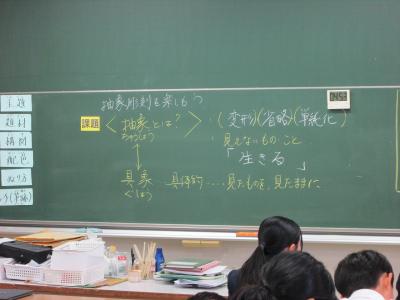 抽象彫刻を楽しもう
課題 <抽象とは?> (変形)(省略)(単純化)
ちゅうしょう
見えないもの・こと
「生きる」
具象 具体的……見たものを、見たままに
ぐしょう
主題
題材
構図
配色
ぬり方